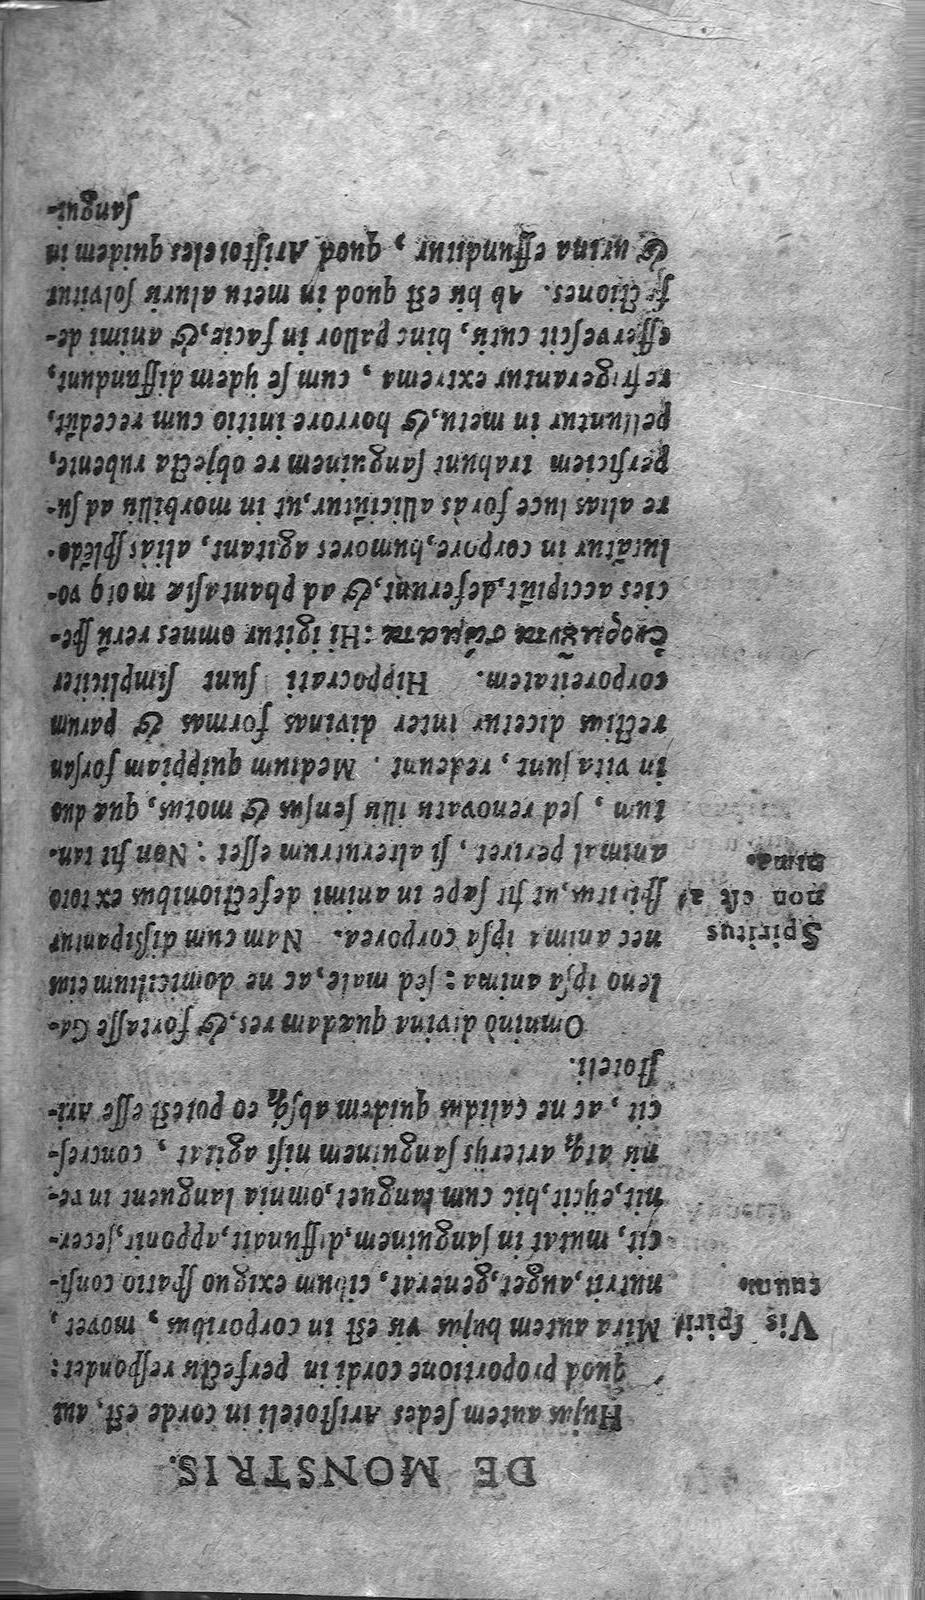 DE MONSTRIS.
Hujus autem sedes Aristoteli in corde est, aut
quod proportione cordi in perfectis respondet:
Vis spirit
Mira autem hujus vis est in corporibus, movet,
nutrit, auget, generat, cibum exiguo spatio confi-
tuum.
cit, mutat in sanguinem, diffundit, apponit, secer-
nit, ejicit, hic cum languet, omnia languent in ve-
nis atq; arterijs sanguinem nisi agitat, concres-
cit, ac ne calidus quidem absq; eo potest esse Ari-
stoteli.
Omninò divina quædam res, & fortasse Ga-
leno ipsa anima: sed male, ac ne domicilium eius
Spiritus
nec anima ipsa corporea. Nam cum dissipantur
non est a-
spiritus, ut fit sæpe in animi defectionibus ex toto
nima.
animal periret, si alterutrum esset: Non fit tan-
tum, sed renovatis illis sensus & motus, quæ duo
in vita sunt, redeunt. Medium quippiam forsan
rectius dicetur inter divinas formas & parum
corporeitatem. Hippocrati sunt simpliciter
ἐνορμοῦντα σώματα: Hi igitur omnes rerũ spe-
cies accipiũt, deferunt, & ad phantasiæ motũ vo-
lutãtur in corpore, humores agitant, aliàs splẽdo-
re alias luce foràs alliciũtur, ut in morbillis ad su-
perficiem trahunt sanguinem re objecta rubente,
pelluntur in metu, & horrore initio cum recedũt,
refrigerantur extrema, cum se ijdem diffundunt,
effervescit cutis, hinc pallor in facie, & animi de-
fectiones. Ab his est quod in metu alvus solvitur
& urina effunditur, quod Aristoteles quidem in
sangui-